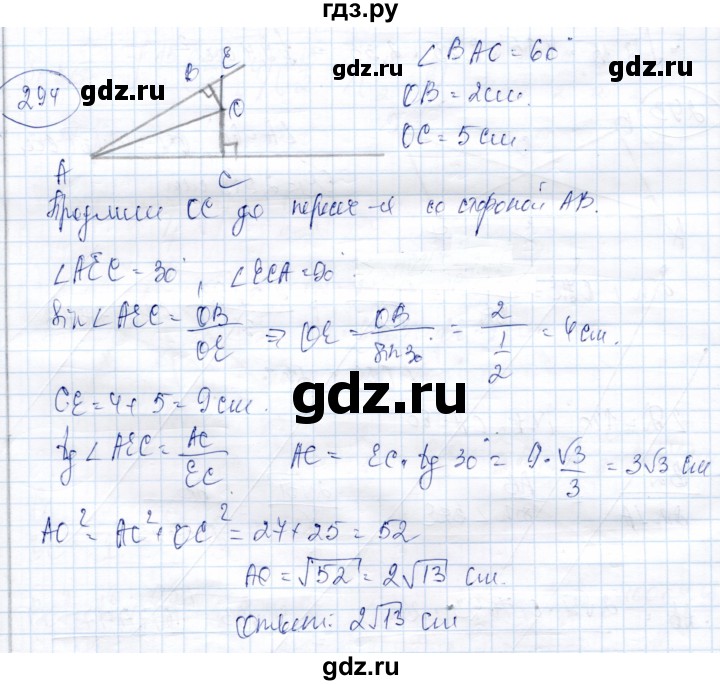 гдз.ру
294
gdz.ru
B
E
O
A
C
gdz.ru
∠BAC = 60°
gdz.ru
OB = 2 см.
OC = 5 см.
Продлили OC до пересеч-я со стороной AB.
∠AEC = 30°, ∠ECA = 90°
sin∠AEC = OB/OE ⇒ OE = OB/sin30° = 2/(1/2) = 4 см.
gdz.ru
CE = 4 + 5 = 9 см.
tg∠AEC = AC/EC AC = EC · tg 30° = 9 · √3/3 = 3√3 см
AO² = AC² + OC² = 27 + 25 = 52
AO = √52 = 2√13 см.
Ответ: 2√13 см
gdz.ru